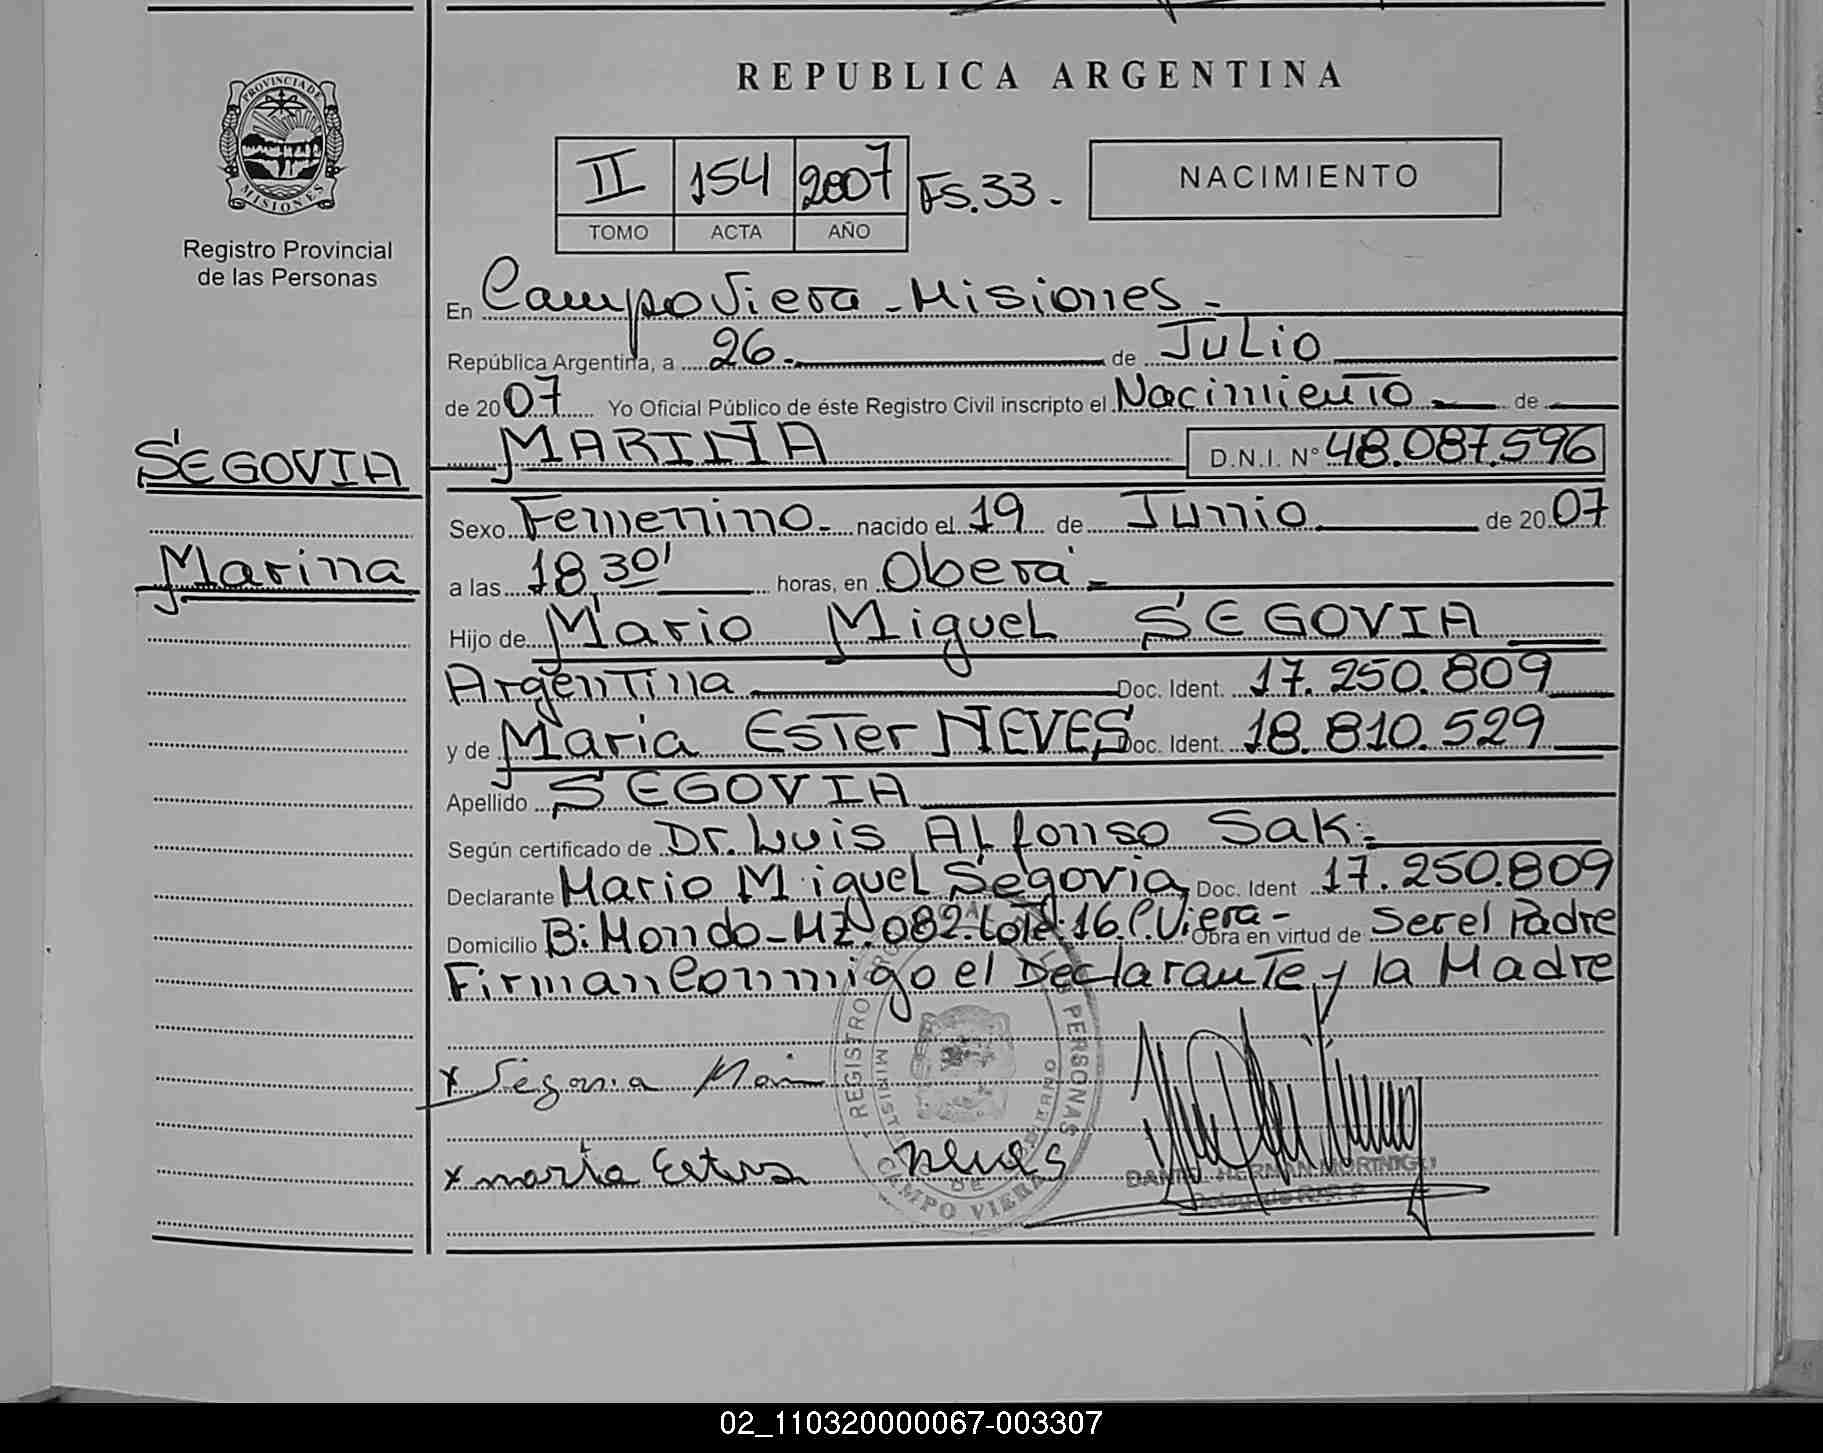 REPUBLICA ARGENTINA
PROVINCIA DE
MISIONES
Registro Provincial
de las Personas
II 154 2007 Fs.33.
TOMO ACTA AÑO
NACIMIENTO
En Campo Viera - Misiones -
República Argentina, a 26 - de Julio
de 2007 Yo Oficial Público de éste Registro Civil inscripto el Nacimiento de
SEGOVIA
MARINA D.N.I. N° 48.087.596
Sexo Femenino - nacido el 19 de Junio de 2007
Marina
a las 18,30' horas, en Oberá -
Hijo de Mario Miguel SEGOVIA
Argentina Doc. Ident. 17.250.809
y de Maria Ester NEVES Doc. Ident. 18.810.529
Apellido SEGOVIA
Según certificado de Dr. Luis Alfonso Sak.
Declarante Mario Miguel Segovia Doc. Ident 17.250.809
Domicilio B: Mondo - MZ. 082. Lote: 16. C. Viera - Obra en virtud de Ser el Padre
Firman Conmigo el Declarante y la Madre
x Segovia
x maria Ester neves
REGISTRO PERSONAS
CAMPO VIERA
02_110320000067-003307